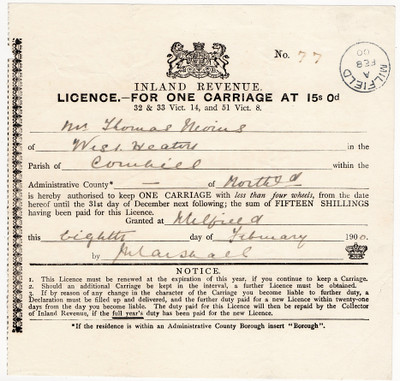 No. 77
MILFIELD
A
FE 8
00
INLAND REVENUE.
LICENCE.—FOR ONE CARRIAGE AT 15s 0d
32 & 33 Vict. 14, and 51 Vict. 8.
Mr Thomas Nevins
of West Heaton in the
Parish of Cornhill within the
Administrative County* — of North'd
is hereby authorised to keep ONE CARRIAGE with less than four wheels, from the date
hereof until the 31st day of December next following; the sum of FIFTEEN SHILLINGS
having been paid for this Licence.
Granted at Milfield
this Eighth day of February 1900.
by J Marshall
NOTICE.
1. This Licence must be renewed at the expiration of this year, if you continue to keep a Carriage.
2. Should an additional Carriage be kept in the interval, a further Licence must be obtained.
3. If by reason of any change in the character of the Carriage you become liable to further duty, a
Declaration must be filled up and delivered, and the further duty paid for a new Licence within twenty-one
days from the day you become liable. The duty paid for this Licence will then be repaid by the Collector
of Inland Revenue, if the full year's duty has been paid for the new Licence.
*If the residence is within an Administrative County Borough insert "Borough".